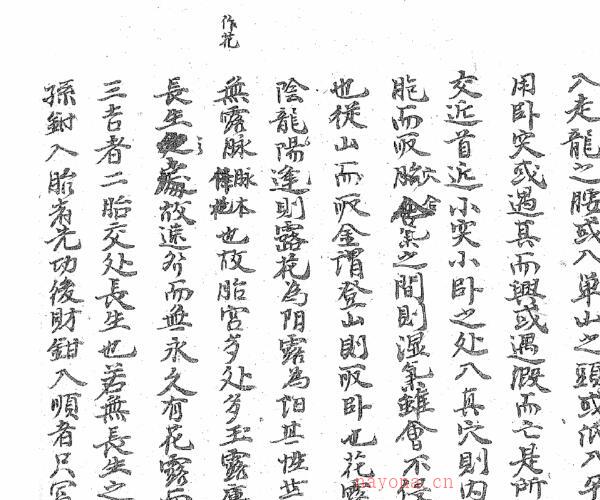 入走龍之腰或入單山之頭或依入平
用卧突或遇真而興或遇假而亡是所
交近首近小突小卧之处入真穴則内
胞而取胎穴舍氣之間則湿氣雖會不
也從山而取金謂登山則取卧也花露
陰龍陽逢則露花為阳露為阳其性
無露脉脉本也故胎宫多处多玉露
作花
長生之處故送外而無永久有花露而
三吉者二胎交处長生也若無長生之
孫鉗入胎者先功後財鉗入順者只
nayona.cn